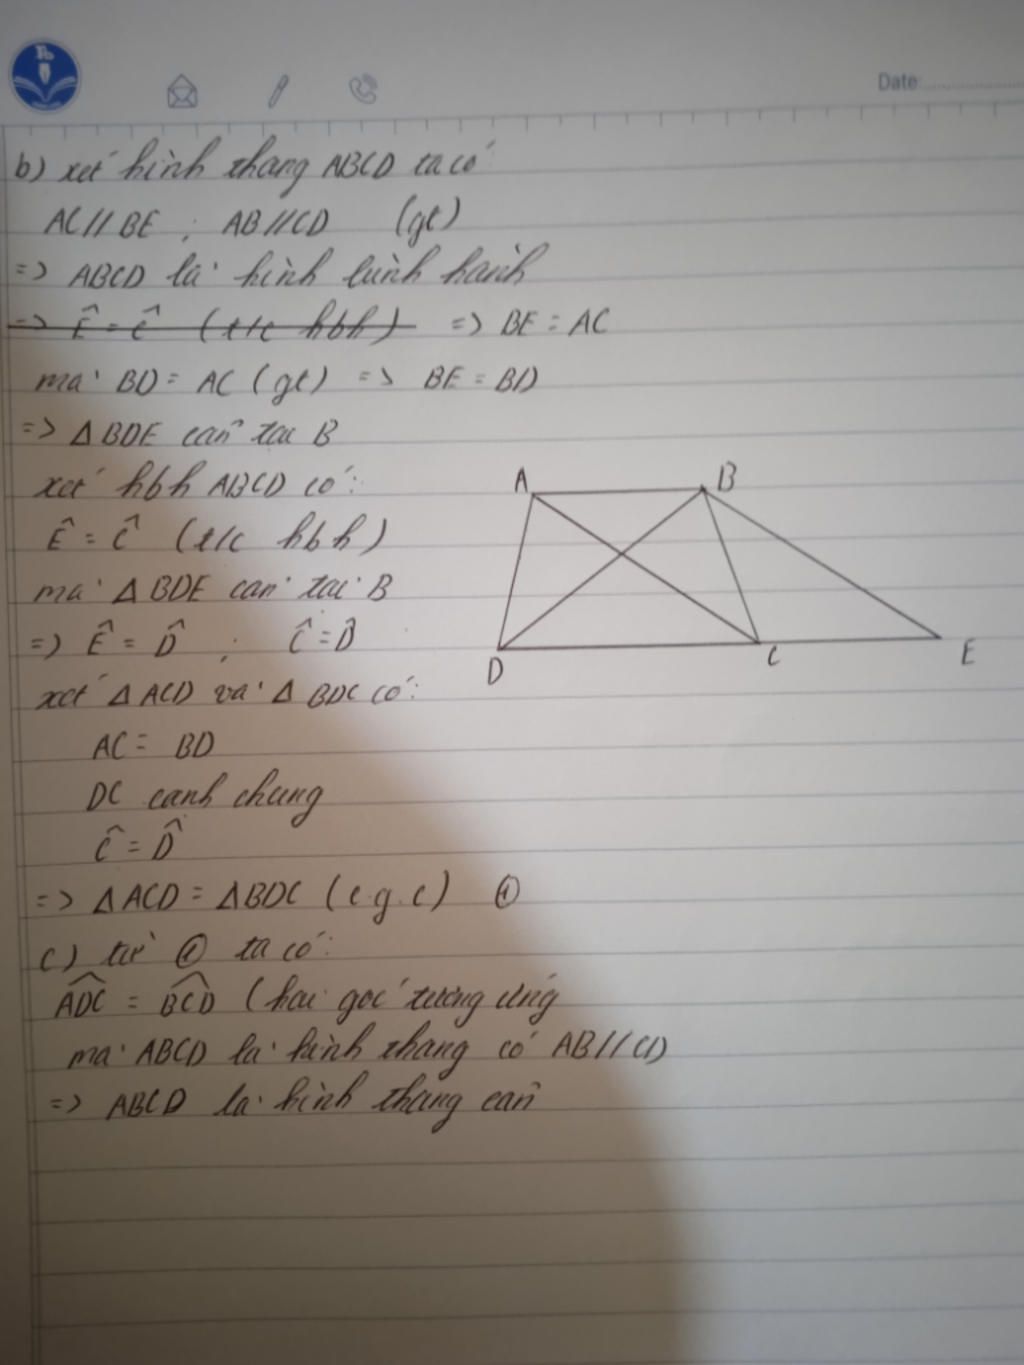 Date:
b) xét hình thang ABCD ta có
AC // BE ; AB // CD (gt)
=> ABCD là hình bình hành
=> Ê = Ĉ (t/c hbh) => BE = AC
mà BD = AC (gt) => BE = BD
=> Δ BDE cân tại B
xét hbh ABCD có:
Ê = Ĉ (t/c hbh)
mà Δ BDE cân tại B
=> Ê = D̂ ; Ĉ = D̂
xét Δ ACD và Δ BDC có:
AC = BD
DC cạnh chung
Ĉ = D̂
=> Δ ACD = Δ BDC (c.g.c) ①
c) từ ① ta có:
ADC = BCD (hai góc tương ứng
mà ABCD là hình thang có AB // CD
=> ABCD là hình thang cân
A B
D C E